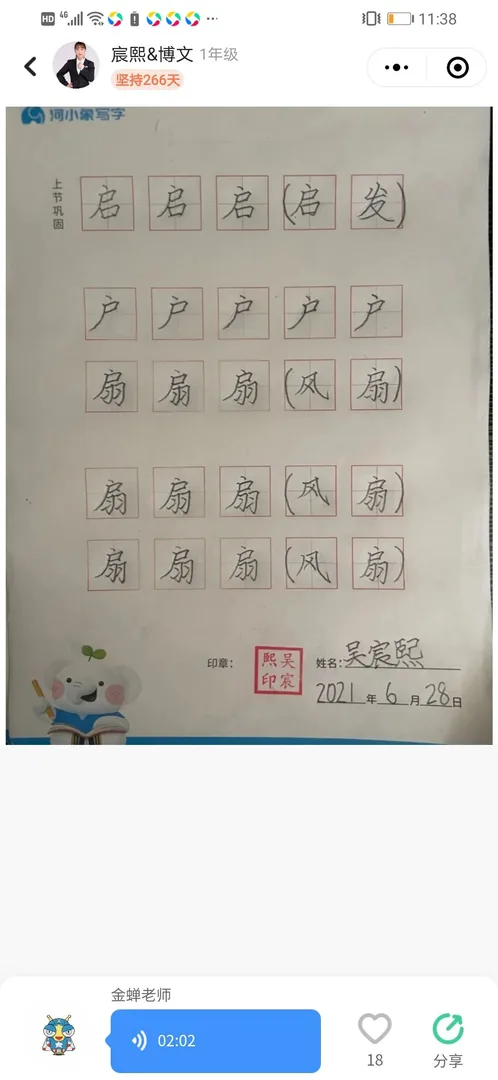 HD 4G 11:38
宸熙&博文 1年级
坚持266天
河小象写字
上节巩固
启 启 启 (启 发)
户 户 户 户 户
扇 扇 扇 (风 扇)
扇 扇 扇 (风 扇)
扇 扇 扇 (风 扇)
印章: 熙吴印宸 姓名: 吴宸熙
2021年6月28日
金蝉老师
02:02
18 分享